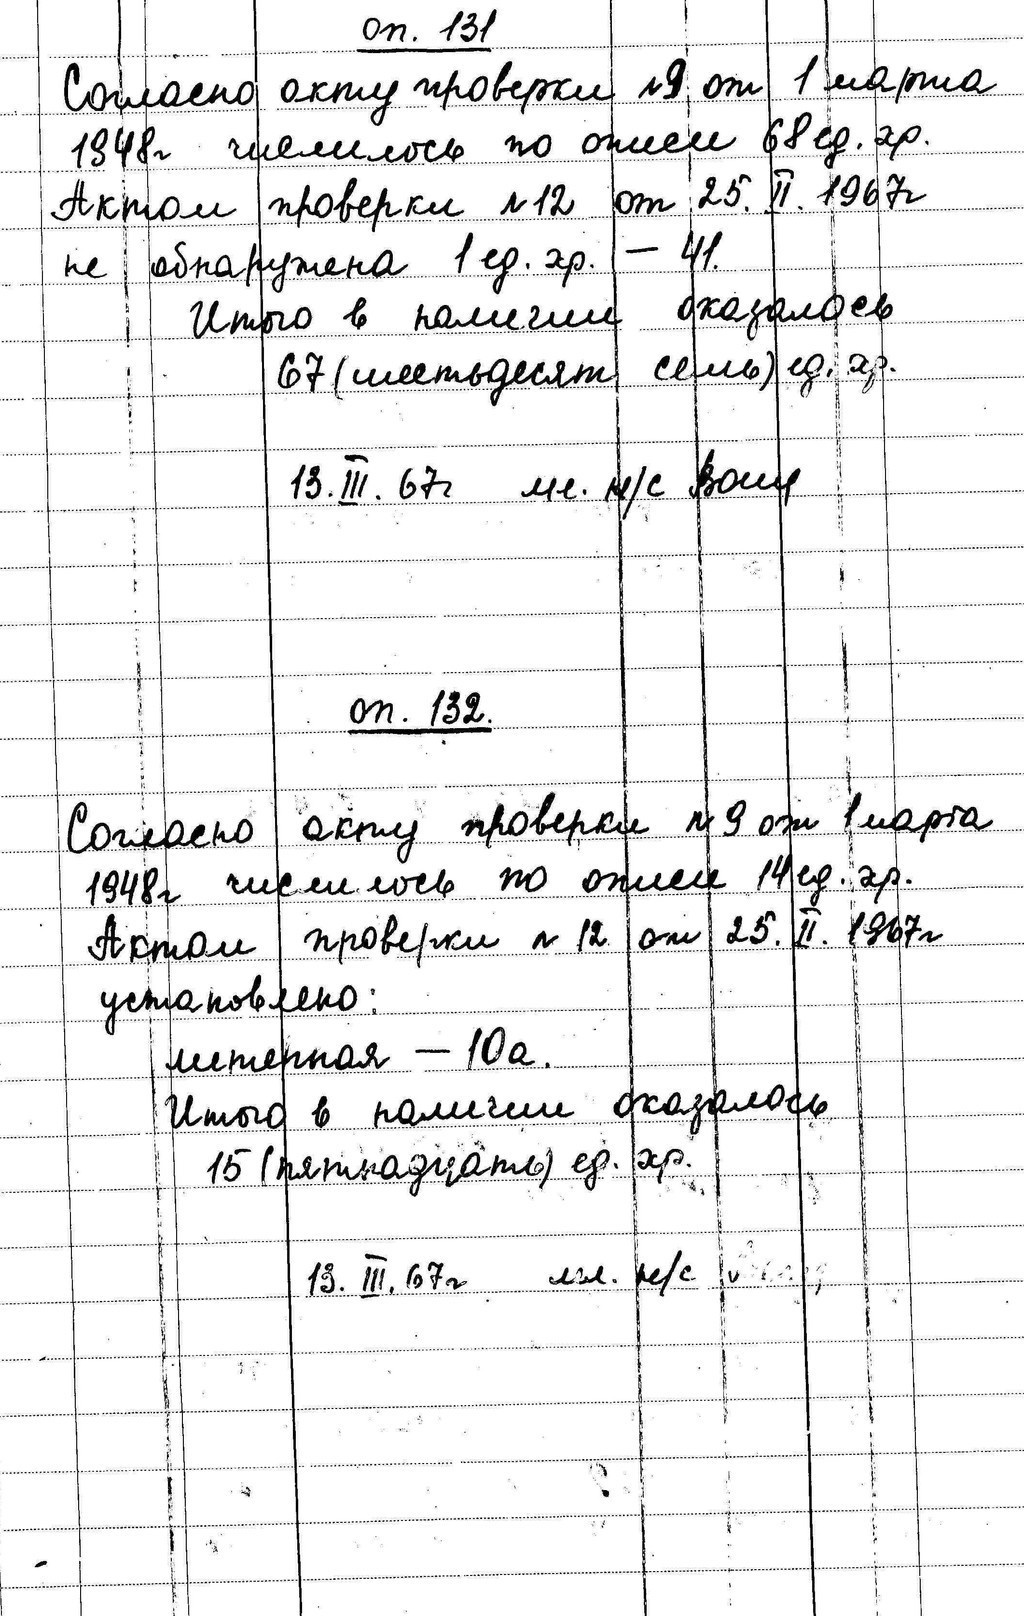 оп. 131
Согласно акту проверки №9 от 1 марта
1948г числилось по описи 68 ед. хр.
Актом проверки №12 от 25. II. 1967г
не обнаружена 1 ед. хр. – 41.
Итого в наличии оказалось
67 (шестьдесят семь) ед. хр.
13. III. 67г мл. н/с
оп. 132.
Согласно акту проверки №9 от 1 марта
1948г числилось по описи 14 ед. хр.
Актом проверки № 12 от 25. II. 1967г
установлено:
литерная – 10а.
Итого в наличии оказалось
15 (пятнадцать) ед. хр.
13. III. 67г мл. н/с